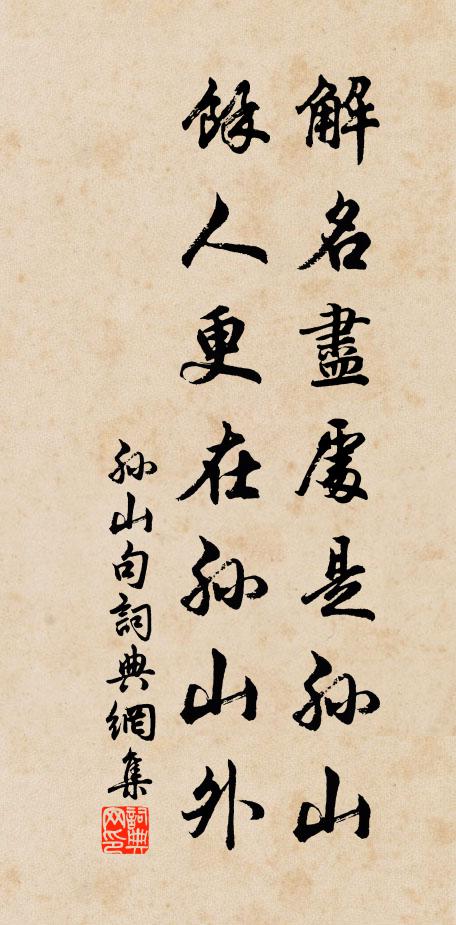 解名盡處是孫山
餘人更在孫山外
孫山句詞典網集
詞典網印